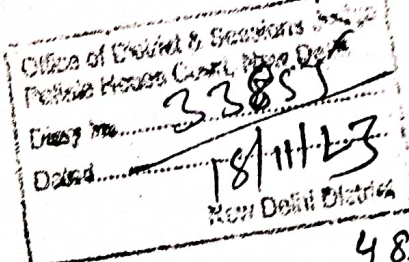 Office of District & Sessions Judge
Patiala House Court, New Delhi
Diary No.......
Dated.......18/11/23
New Delhi District
48